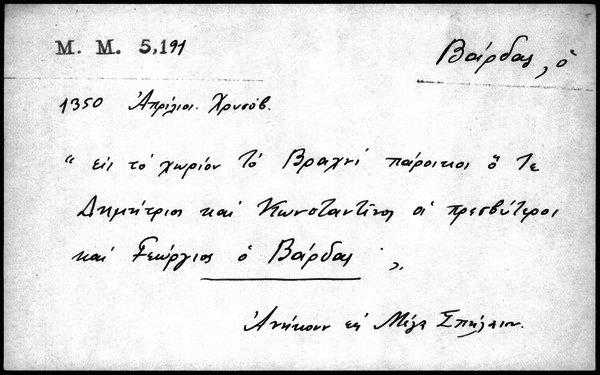 Μ. Μ. 5,191
Βάρδας, ὁ
1350 Ἀπρίλιος. Χρυσόβ.
" εἰς τὸ χωρίον τὸ Βραχνὶ πάροικοι ὅ τε
Δημήτριος καὶ Κωνσταντῖνος οἱ πρεσβύτεροι
καὶ Γεώργιος ὁ Βάρδας ".
Ἀνήκουν εἰς Μέγα Σπήλαιον.